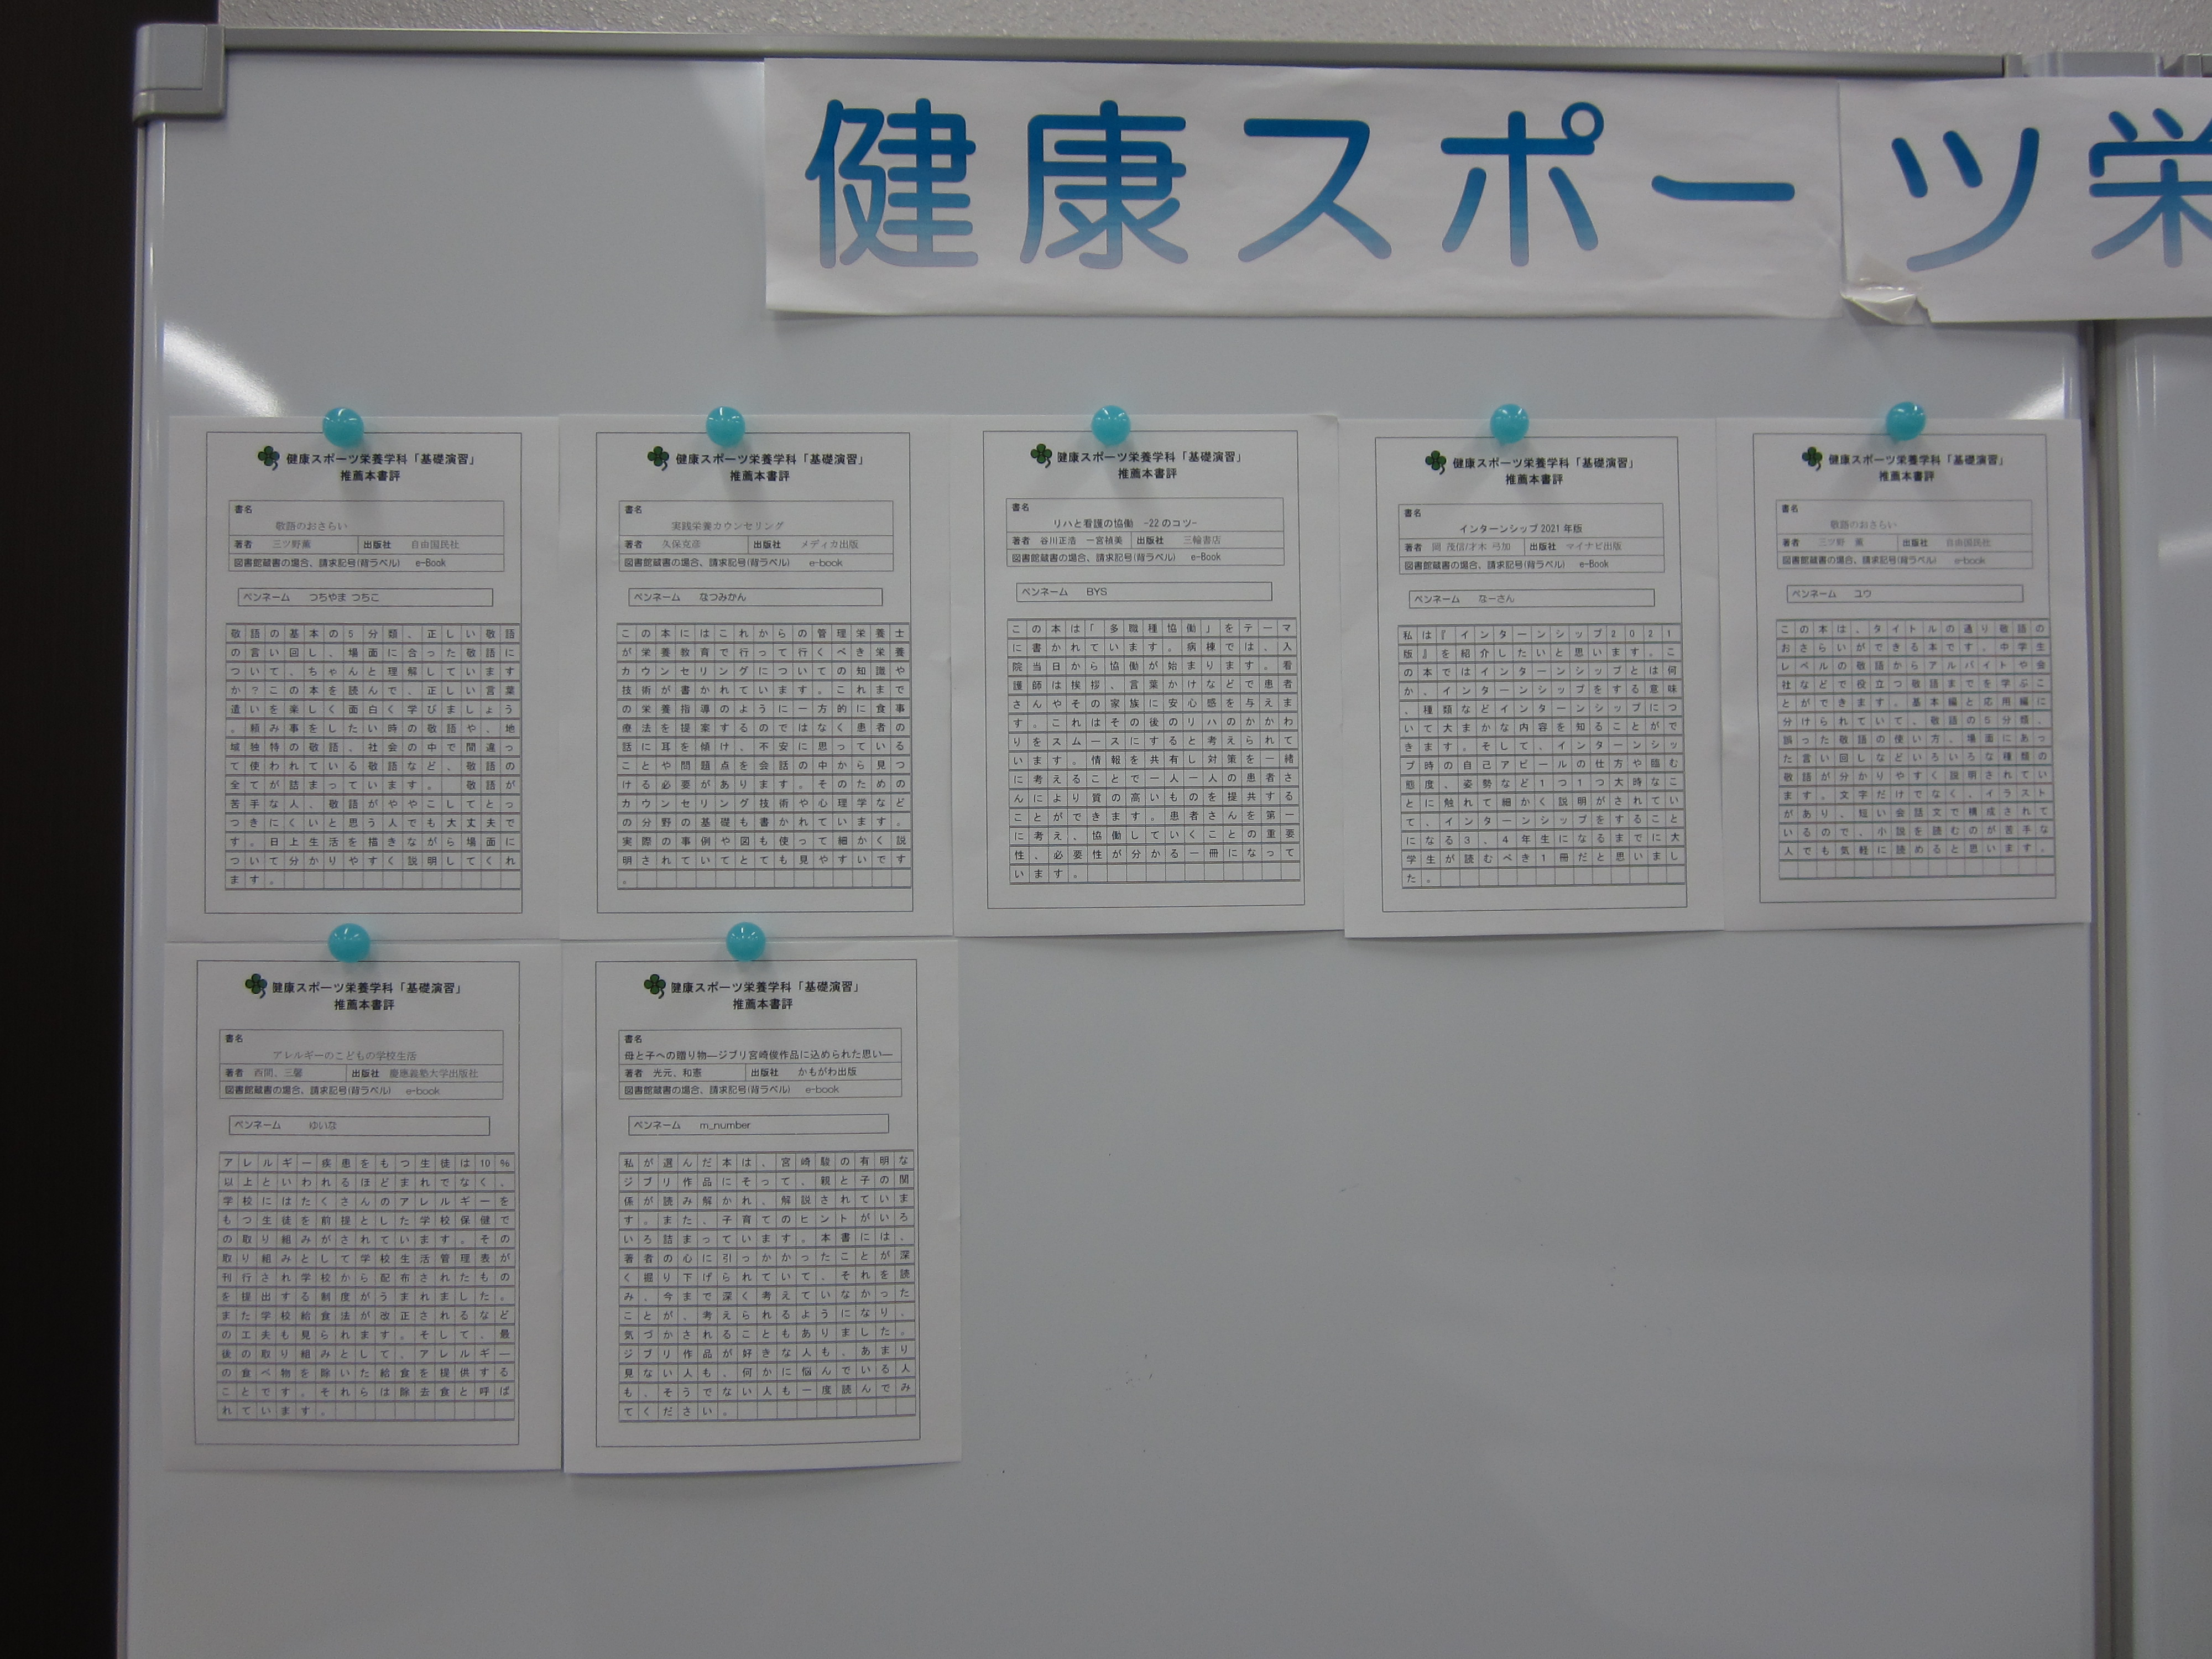 健康スポーツ栄
健康スポーツ栄養学科「基礎演習」
推薦本書評
書名
敬語のおさらい
著者 三ツ野薫 出版社 自由国民社
図書館蔵書の場合、請求記号(背ラベル) e-Book
ペンネーム つちやま つちこ
敬語の基本の5分類、正しい敬語
の言い回し、場面に合った敬語に
ついて、ちゃんと理解しています
か?この本を読んで、正しい言葉
遣いを楽しく面白く学びましょう
。頼み事をしたい時の敬語や、地
域独特の敬語、社会の中で間違っ
て使われている敬語など、敬語の
全てが詰まっています。 敬語が
苦手な人、敬語がややこしてとっ
つきにくいと思う人でも大丈夫で
す。日上生活を描きながら場面に
ついて分かりやすく説明してくれ
ます。
健康スポーツ栄養学科「基礎演習」
推薦本書評
書名
実践栄養カウンセリング
著者 久保克彦 出版社 メディカ出版
図書館蔵書の場合、請求記号(背ラベル) e-book
ペンネーム なつみかん
この本にはこれからの管理栄養士
が栄養教育で行って行くべき栄養
カウンセリングについての知識や
技術が書かれています。これまで
の栄養指導のように一方的に食事
療法を提案するのではなく患者の
話に耳を傾け、不安に思っている
ことや問題点を会話の中から見つ
ける必要があります。そのための
カウンセリング技術や心理学など
の分野の基礎も書かれています。
実際の事例や図も使って細かく説
明されていてとても見やすいです
。
健康スポーツ栄養学科「基礎演習」
推薦本書評
書名
リハと看護の協働 -22のコツ-
著者 谷川正浩 一宮禎美 出版社 三輪書店
図書館蔵書の場合、請求記号(背ラベル) e-Book
ペンネーム BYS
この本は「多職種協働」をテーマ
に書かれています。病棟では、入
院当日から協働が始まります。看
護師は挨拶、言葉かけなどで患者
さんやその家族に安心感を与えま
す。これはその後のリハのかかわ
りをスムースにすると考えられて
います。情報を共有し対策を一緒
に考えることで一人一人の患者さ
んにより質の高いものを提共する
ことができます。患者さんを第一
に考え、協働していくことの重要
性、必要性が分かる一冊になって
います。
健康スポーツ栄養学科「基礎演習」
推薦本書評
書名
インターンシップ2021年版
著者 岡 茂信/才木 弓加 出版社 マイナビ出版
図書館蔵書の場合、請求記号(背ラベル) e-Book
ペンネーム なーさん
私は『インターンシップ2021
版』を紹介したいと思います。こ
の本ではインターンシップとは何
か、インターンシップをする意味
、種類などインターンシップにつ
いて大まかな内容を知ることがで
きます。そして、インターンシッ
プ時の自己アピールの仕方や臨む
態度、姿勢など1つ1つ大時なこ
とに触れて細かく説明がされてい
て、インターンシップをすること
になる3、4年生になるまでに大
学生が読むべき1冊だと思いまし
た。
健康スポーツ栄養学科「基礎演習」
推薦本書評
書名
敬語のおさらい
著者 三ツ野 薫 出版社 自由国民社
図書館蔵書の場合、請求記号(背ラベル) e-book
ペンネーム ユウ
この本は、タイトルの通り敬語の
おさらいができる本です。中学生
レベルの敬語からアルバイトや会
社などで役立つ敬語までを学ぶこ
とができます。基本編と応用編に
分けられていて、敬語の5分類、
誤った敬語の使い方、場面にあっ
た言い回しなどいろいろな種類の
敬語が分かりやすく説明されてい
ます。文字だけでなく、イラスト
があり、短い会話文で構成されて
いるので、小説を読むのが苦手な
人でも気軽に読めると思います。
健康スポーツ栄養学科「基礎演習」
推薦本書評
書名
アレルギーのこどもの学校生活
著者 西間、三馨 出版社 慶應義塾大学出版社
図書館蔵書の場合、請求記号(背ラベル) e-book
ペンネーム ゆいな
アレルギー疾患をもつ生徒は10%
以上といわれるほどまれでなく、
学校にはたくさんのアレルギーを
もつ生徒を前提とした学校保健で
の取り組みがされています。その
取り組みとして学校生活管理表が
刊行され学校から配布されたもの
を提出する制度がうまれました。
また学校給食法が改正されるなど
の工夫も見られます。そして、最
後の取り組みとして、アレルギー
の食べ物を除いた給食を提供する
ことです。それらは除去食と呼ば
れています。
健康スポーツ栄養学科「基礎演習」
推薦本書評
書名
母と子への贈り物―ジブリ宮崎俊作品に込められた思い―
著者 光元、和憲 出版社 かもがわ出版
図書館蔵書の場合、請求記号(背ラベル) e-book
ペンネーム m_number
私が選んだ本は、宮崎駿の有明な
ジブリ作品にそって、親と子の関
係が読み解かれ、解説されていま
す。また、子育てのヒントがいろ
いろ詰まっています。本書には、
著者の心に引っかかったことが深
く掘り下げられていて、それを読
み、今まで深く考えていなかった
ことが、考えられるようになり、
気づかされることもありました。
ジブリ作品が好きな人も、あまり
見ない人も、何かに悩んでいる人
も、そうでない人も一度読んでみ
てください。